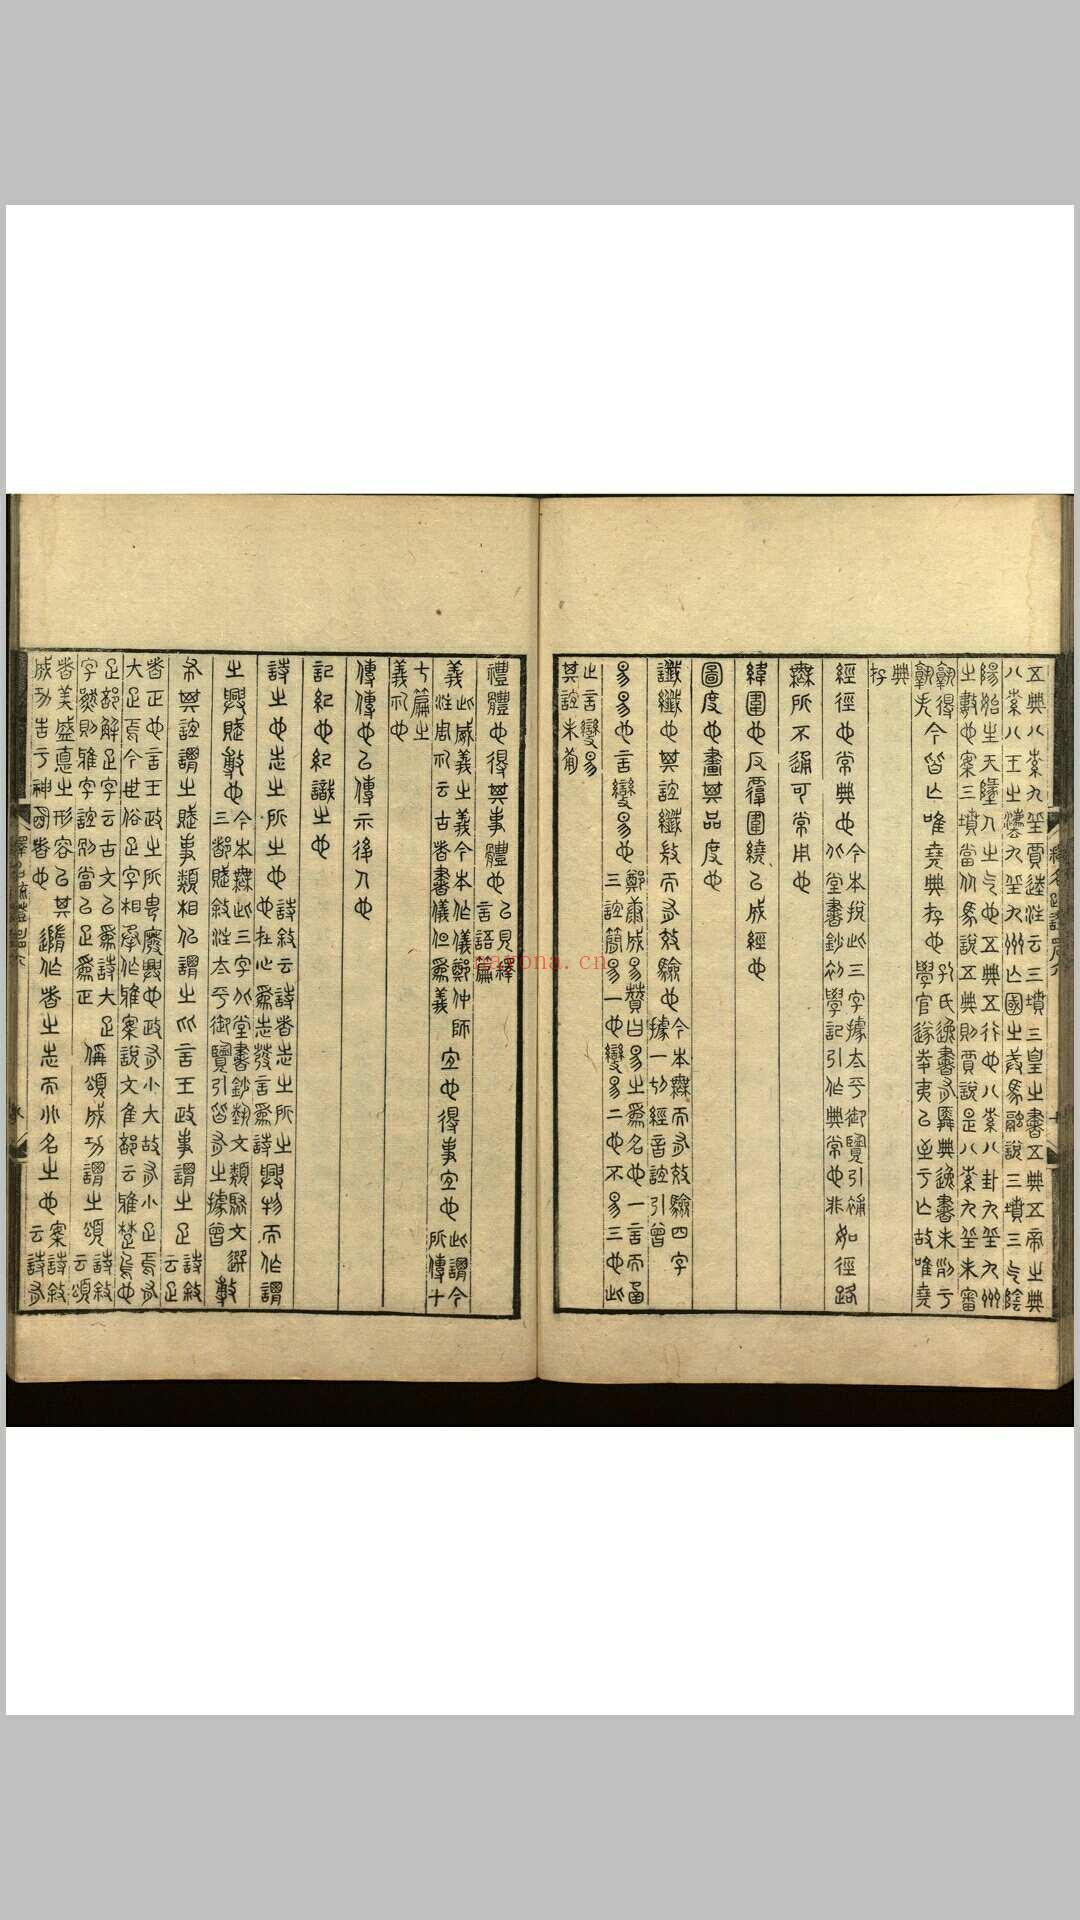 五典八索九丘賈逵注云三墳三皇之書五典五帝之典
八索八王之灋九丘九州亡國之戒馬融說三墳三气陰
陽始生天地人之气也五典五行也八索八卦九丘九州
之數也案三墳當从馬說五典則賈說是八索九丘未審
孰得
孰失
今皆亡唯堯典存也
孔氏逸書有舜典逸書未削于
學官遂至于亡故唯堯
典
存
經徑也常典也
今本挩此三字據太平御覽引補
北堂書鈔初學記引作典常也非
如徑路
無所不通可常用也
緯圍也反覆圍繞以成經也
圖度也畫其品度也
讖纖也其誼纖而有效驗也
今本無而有效驗四字
據一切經音誼引曾
易易也言變易也
鄭康成易贊曰易之爲名也一言而函
三誼簡易一也變易二也不易三也此
止言變易
其誼未葡
禮體也得其事體也
已見釋
言語篇
義
此威義之義今本作儀鄭仲師
注周礼云古者書儀但爲義
宜也得事宜也
此謂今
所傳十
七篇之
義礼也
傳傳也以傳示後人也
記紀也紀識之也
詩之也志之所之也
詩敘云詩者志之所之
也在心爲志發言爲詩
興物而作謂
之興賦敷也
今本無此三字北堂書鈔藝文類聚文選
三都賦敘注太平御覽引皆有之據曾
敷
布其誼謂之賦事類相似謂之比言王政事謂之疋
詩敘
云疋
者正也言王政之所由廢興也政有小大故有小疋焉有
大疋焉今世俗疋字相承作雅案說文隹部云雅楚烏也
疋部解疋字云古文以爲詩大疋
字然則雅字誼別當以疋爲正
偁頌成功謂之頌
詩敘
云頌
者美盛惪之形容以其
成功告于神明者也
隨作者之志而以名之也
案詩敘
云詩有